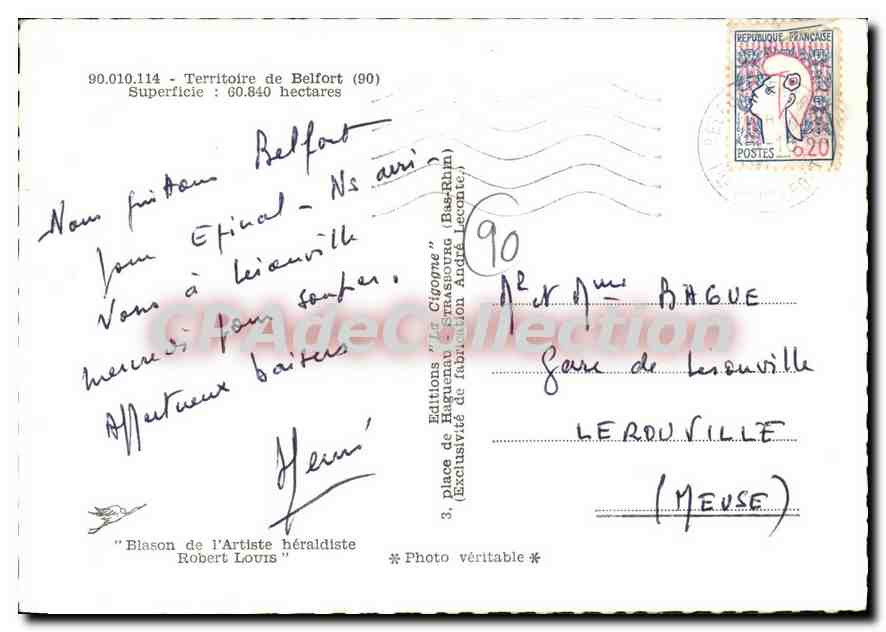 90.010.114 - Territoire de Belfort (90)
Superficie : 60.840 hectares
Nous quittons Belfort
pour Epinal - Ns arri-
vons à Lérouville
mercredi pour souper.
Affectueux baisers
Hervé
"Blason de l'Artiste héraldiste
Robert LOUIS"
Editions "La Cigogne"
3, place de Haguenau - STRASBOURG (Bas-Rhin)
(Exclusivité de fabrication André Leconte.)
* Photo véritable *
REPUBLIQUE FRANÇAISE
POSTES 0,20
90
Mr et Mme BAGUE
Gare de Lérouville
LEROUVILLE
(MEUSE)
CPAdeCollection